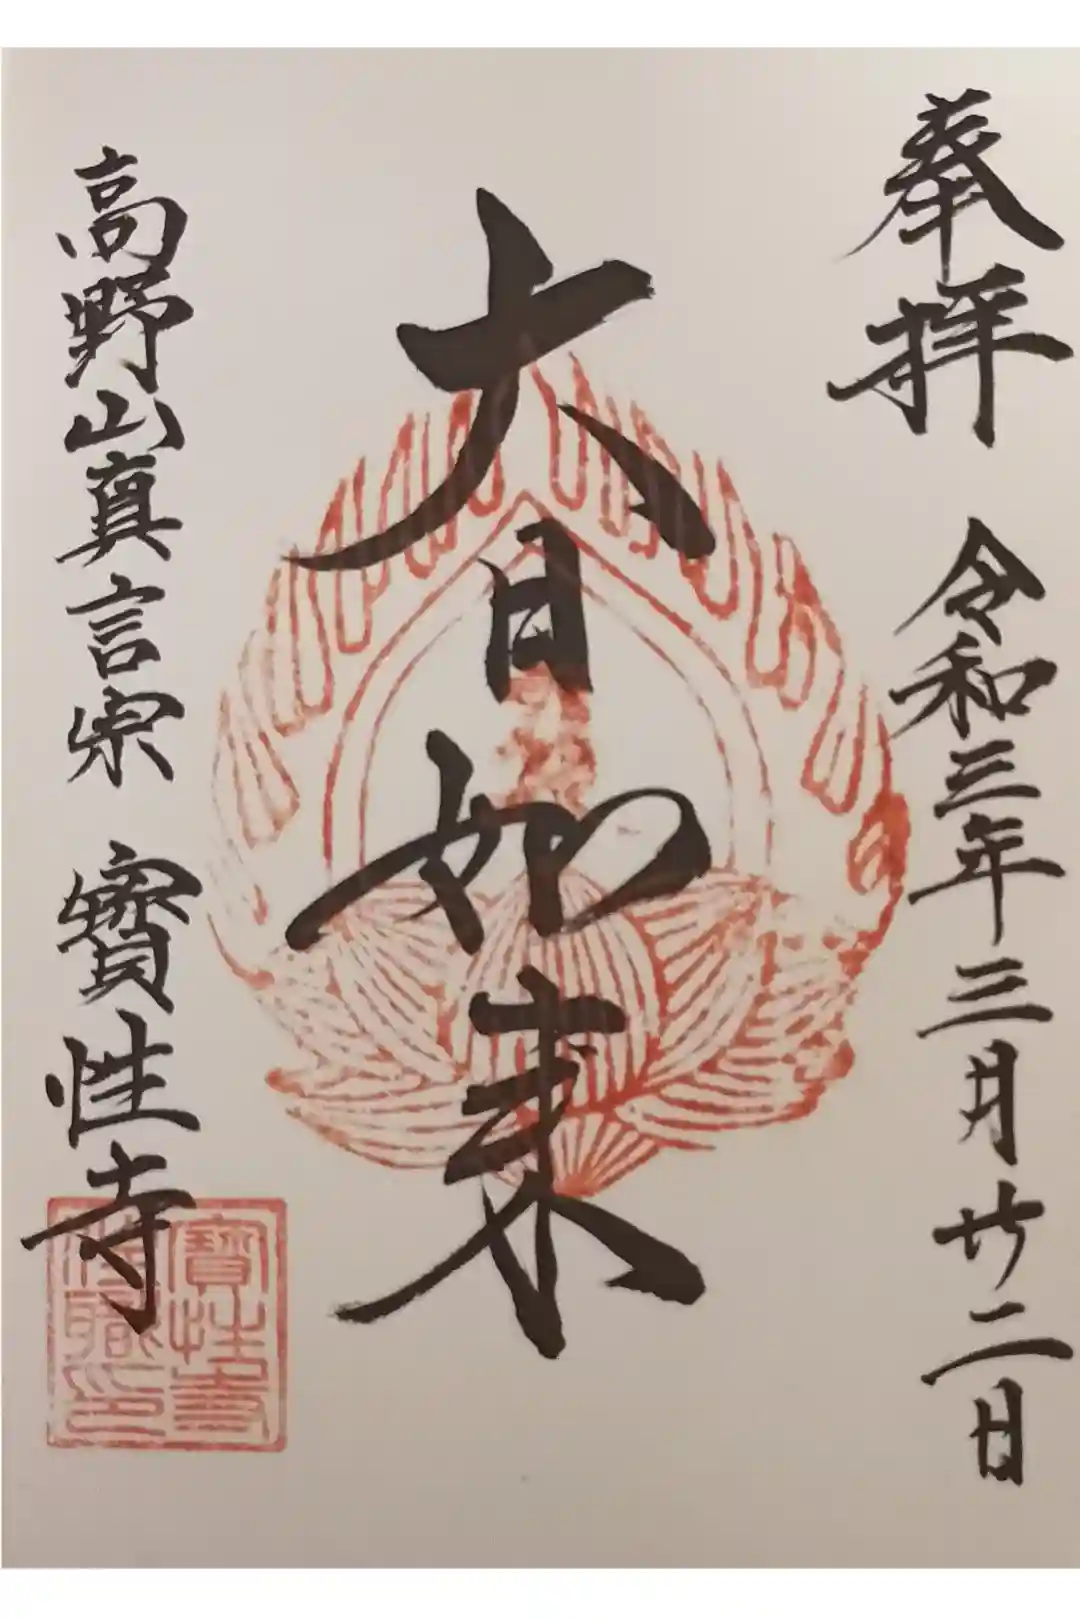 奉拝
令和三年三月廿二日
大日如来
高野山真言宗 寳性寺
寳性寺
職印